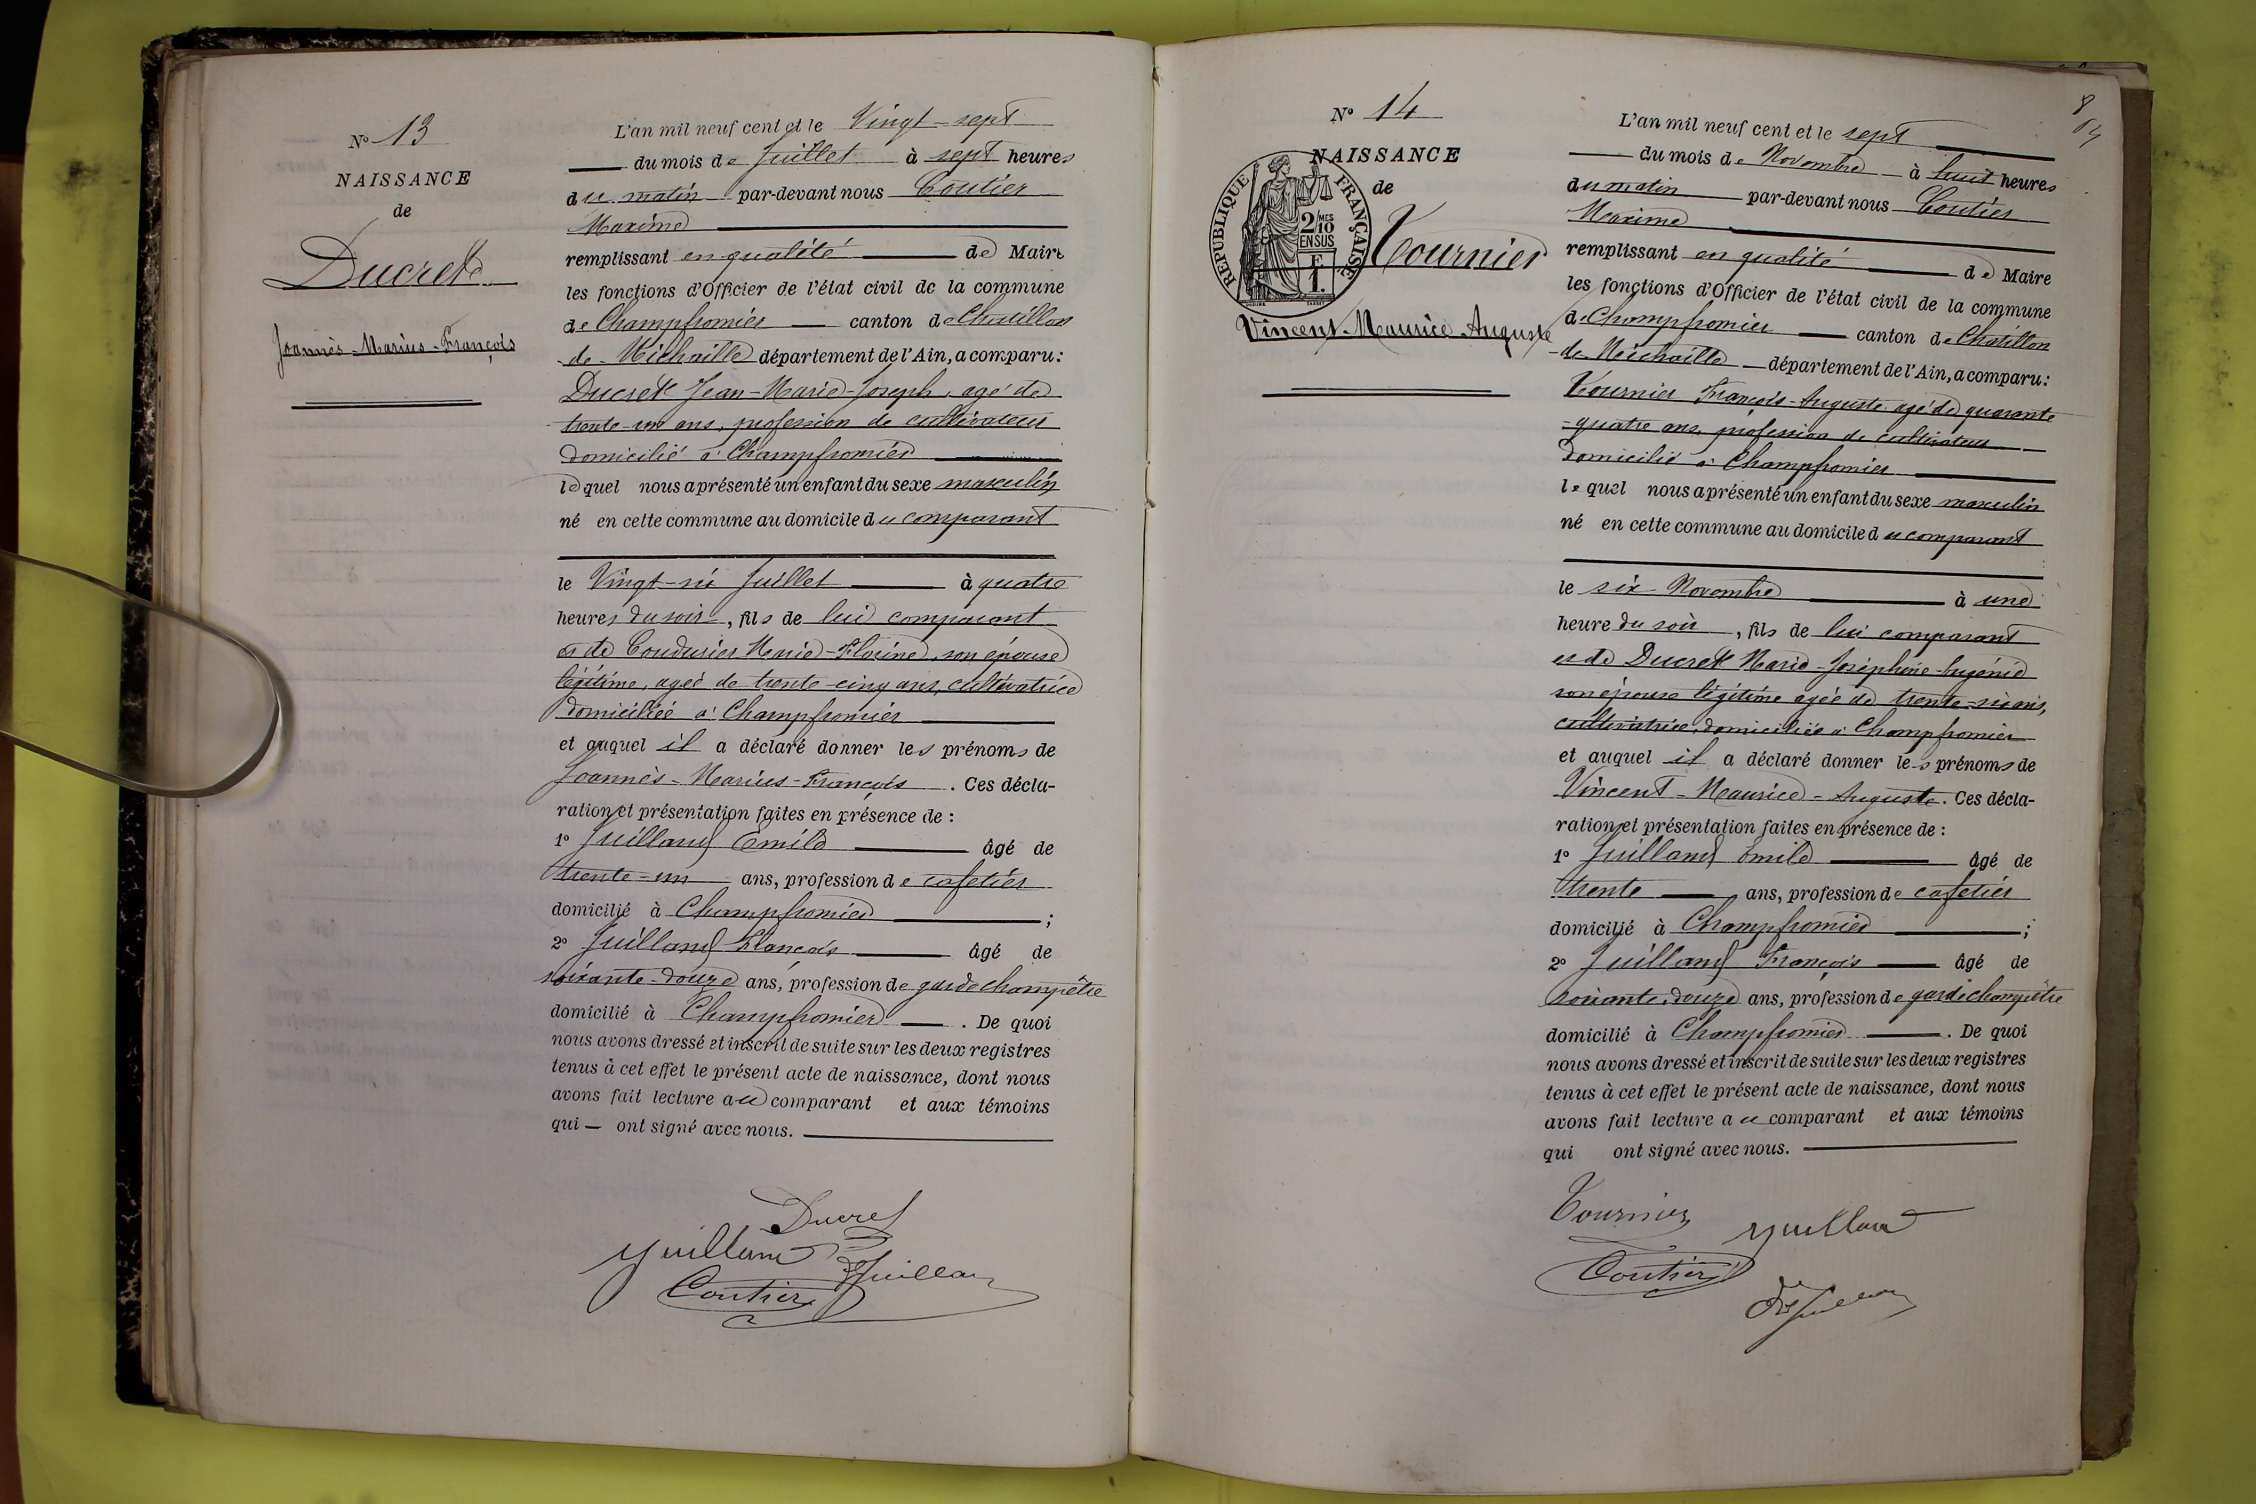 N° 13
NAISSANCE
de
Ducret
Joannès-Marius-François
L'an mil neuf cent et le Vingt-sept
du mois de Juillet à sept heures
du matin par-devant nous Coutier
Maxime
remplissant en qualité de Maire
les fonctions d'Officier de l'état civil de la commune
de Champfromier canton de Chatillon
de Michaille département de l'Ain, a comparu:
Ducret Jean-Marie-Joseph, agé de
trente-un ans, profession de cultivateur
domicilié à Champfromier
lequel nous a présenté un enfant du sexe masculin
né en cette commune au domicile du comparant
le Vingt-six Juillet à quatre
heures du soir, fils de lui comparant
et de Coudurier Marie-Florine, son épouse
légitime, agée de trente-cinq ans, cultivatrice
domiciliée à Champfromier
et auquel il a déclaré donner les prénoms de
Joannès-Marius-François. Ces décla-
ration et présentation faites en présence de:
1° Juilland Emile âgé de
trente-un ans, profession de cafetier
domicilié à Champfromier;
2° Juilland François âgé de
soixante-douze ans, profession de garde champêtre
domicilié à Champfromier. De quoi
nous avons dressé et inscrit de suite sur les deux registres
tenus à cet effet le présent acte de naissance, dont nous
avons fait lecture au comparant et aux témoins
qui ont signé avec nous.
Ducret
Juilland
Juilland
Coutier
8
N° 14
NAISSANCE
de
RÉPUBLIQUE FRANÇAISE
2/10 MES
EN SUS
F
1.
Tournier
Vincent-Maurice-Auguste
L'an mil neuf cent et le sept
du mois de Novembre à huit heures
du matin par-devant nous Coutier
Maxime
remplissant en qualité de Maire
les fonctions d'Officier de l'état civil de la commune
de Champfromier canton de Chatillon
de Michaille département de l'Ain, a comparu:
Tournier François-Auguste agé de quarante
-quatre ans, profession de cultivateur
domicilié à Champfromier
lequel nous a présenté un enfant du sexe masculin
né en cette commune au domicile du comparant
le six Novembre à une
heure du soir, fils de lui comparant
et de Ducret Marie-Joséphine-Eugénie
son épouse légitime agée de trente-six ans,
cultivatrice, domiciliée à Champfromier
et auquel il a déclaré donner les prénoms de
Vincent-Maurice-Auguste. Ces décla-
ration et présentation faites en présence de:
1° Juilland Emile âgé de
trente ans, profession de cafetier
domicilié à Champfromier;
2° Juilland François âgé de
soixante-douze ans, profession de garde champêtre
domicilié à Champfromier. De quoi
nous avons dressé et inscrit de suite sur les deux registres
tenus à cet effet le présent acte de naissance, dont nous
avons fait lecture au comparant et aux témoins
qui ont signé avec nous.
Tournier
Juilland
Coutier